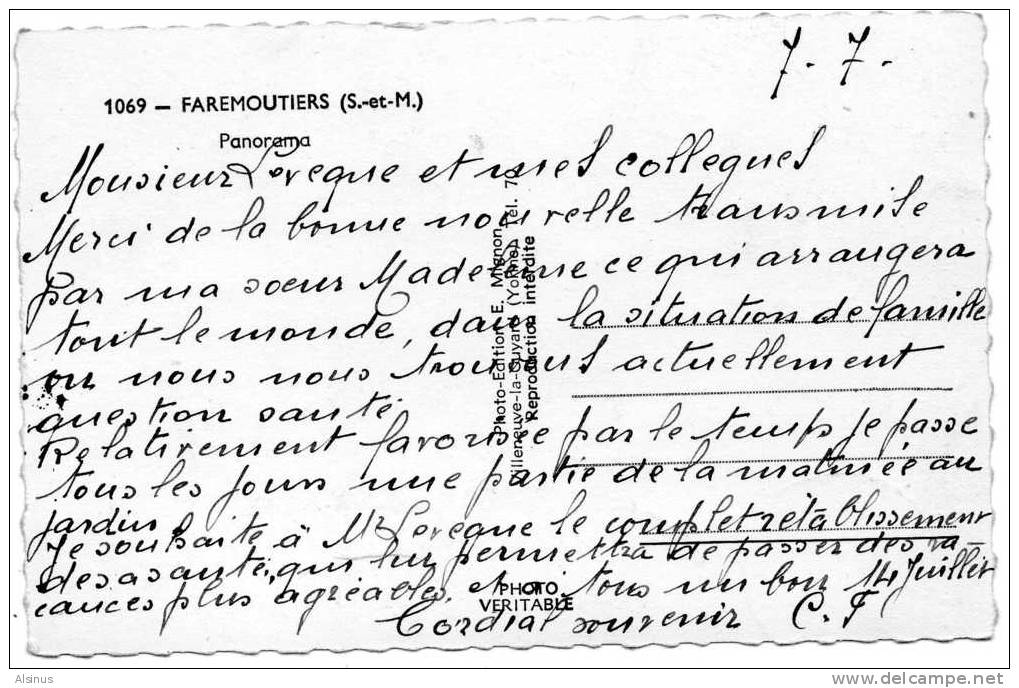 7 - 7 -
1069 — FAREMOUTIERS (S.-et-M.)
Panorama
Monsieur Leveque et mes collegues
Merci de la bonne nouvelle transmise
par ma soeur Madeleine ce qui arrangera
tout le monde, dans la situation de famille
ou nous nous trouvons actuellement
question santé.
Relativement favorisée par le temps je passe
tous les jours une partie de la matinée au
jardin
Je souhaite à Mr Leveque le complet rétablissement
de sa santé, qui lui permettra de passer des va-
cances plus agréables, et à tous un bon 14 Juillet
Cordial souvenir C. F
Photo-Edition E. Mignon
Villeneuve-la-Guyard (Yonne) Tél. 70
Reproduction interdite
PHOTO
VERITABLE
Alsinus
www.delcampe.net